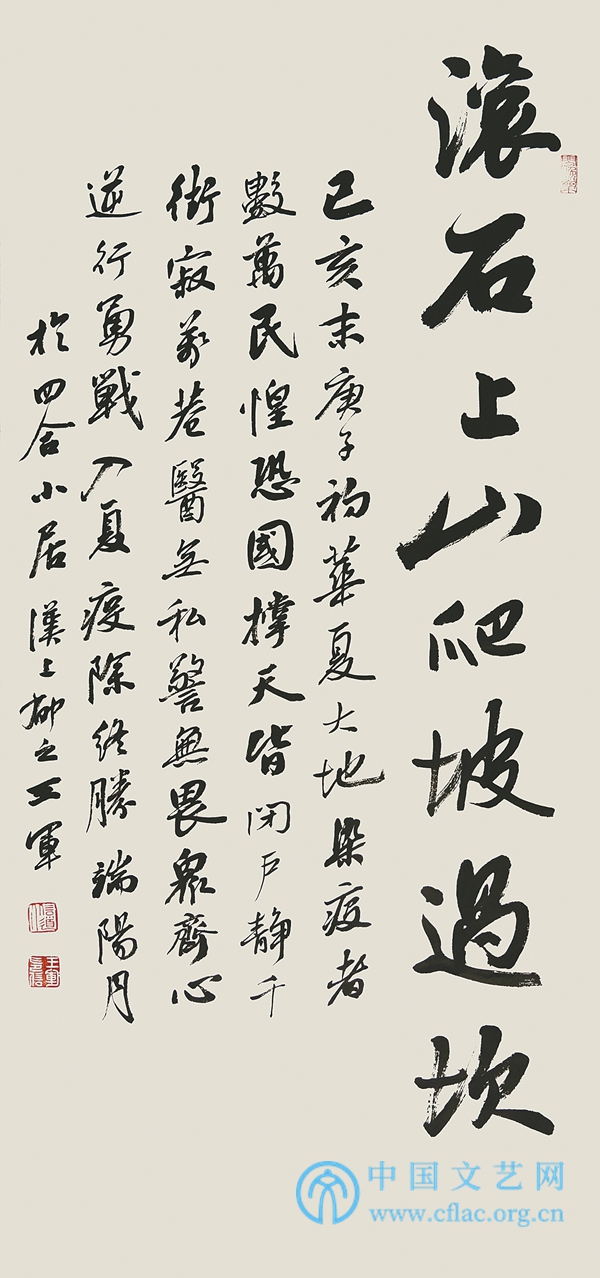 滚石上山爬坡過坎
己亥末庚子初華夏大地染疫者
數萬民惶恐國撑天皆閉户静千
街寂萬巷醫無私警無畏衆齊心
逆行勇戰入夏疫除终勝端陽月
於四合小居漢上柳之王軍
中国文艺网
www.cflac.org.cn